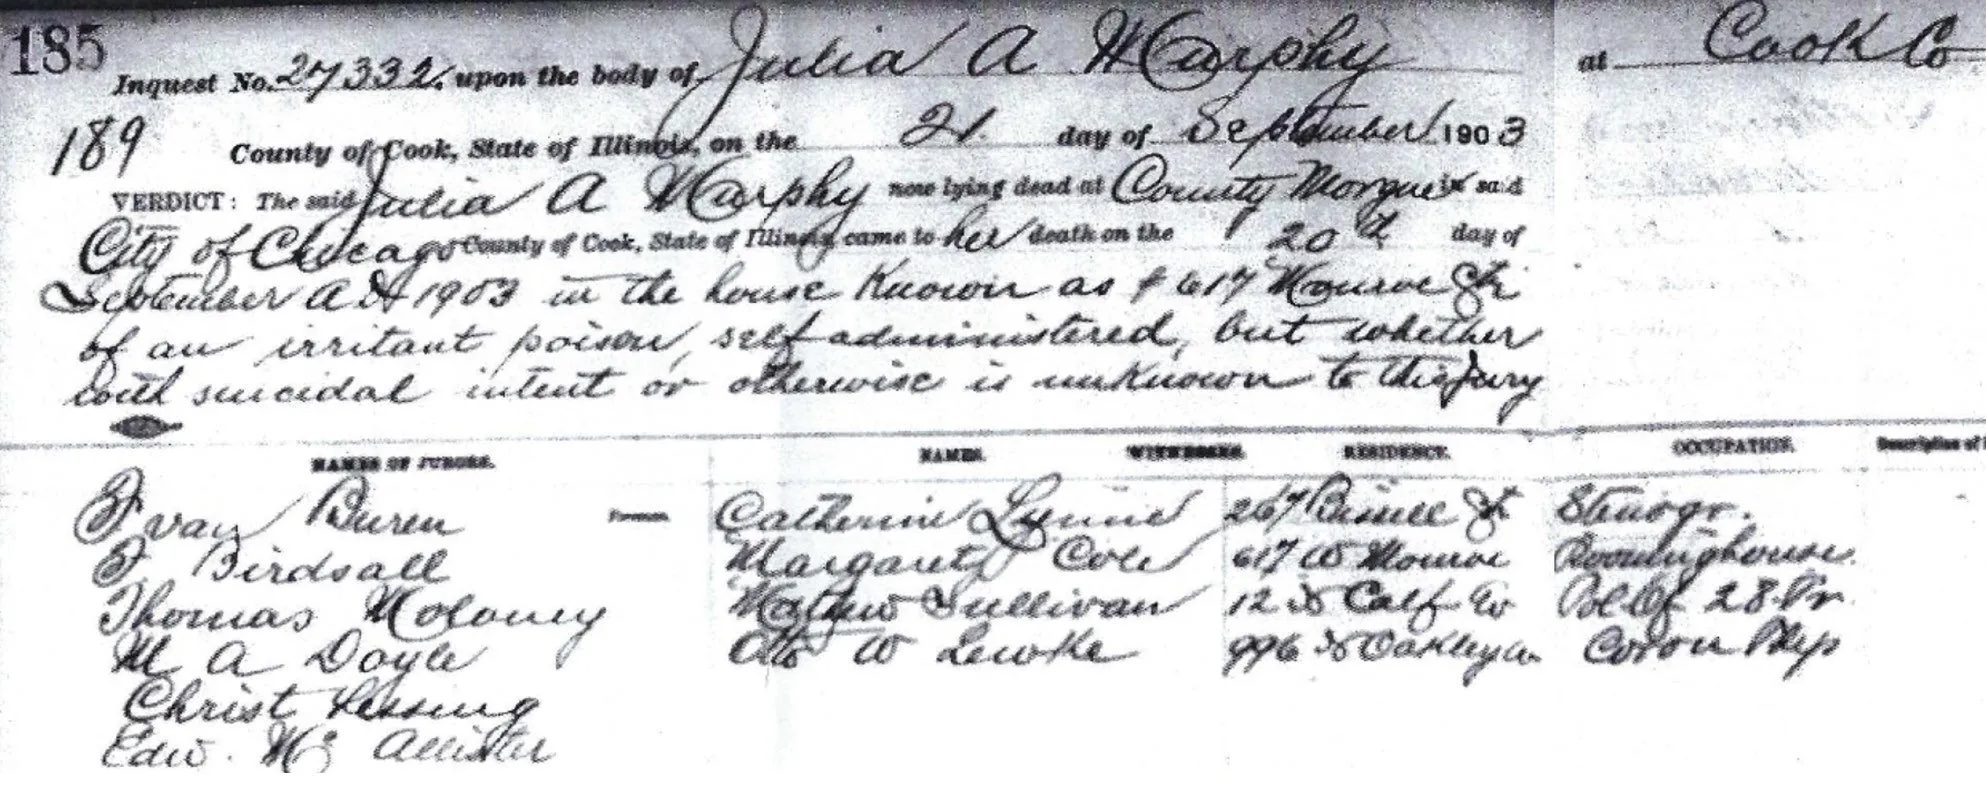 185
Inquest No. 27332 upon the body of Julia A McCarphy at Cook Co
189 County of Cook, State of Illinois, on the 21 day of September 1903
VERDICT: The said Julia A McCarphy now lying dead at County Morgue in said
City of Chicago County of Cook, State of Illinois, came to her death on the 20th day of
September A D 1903 in the house known as # 617 Monroe St
of an irritant poison, self administered, but whether
with suicidal intent or otherwise is unknown to this Jury
NAMES OF JURORS. NAMES. WITNESSES. RESIDENCE. OCCUPATION. Description of
F van Buren Catherine 267 St Stenogr.
F Birdsall Margaret Cole 617 W Monroe Roominghouse.
Thomas Moloney Mathew Sullivan 12 N Calf Av Pol Of 28 Pr
M A Doyle Otto W Lewke 996 N Oakley av Coron Phys
Christ Lessing
Edw. Mc Allister